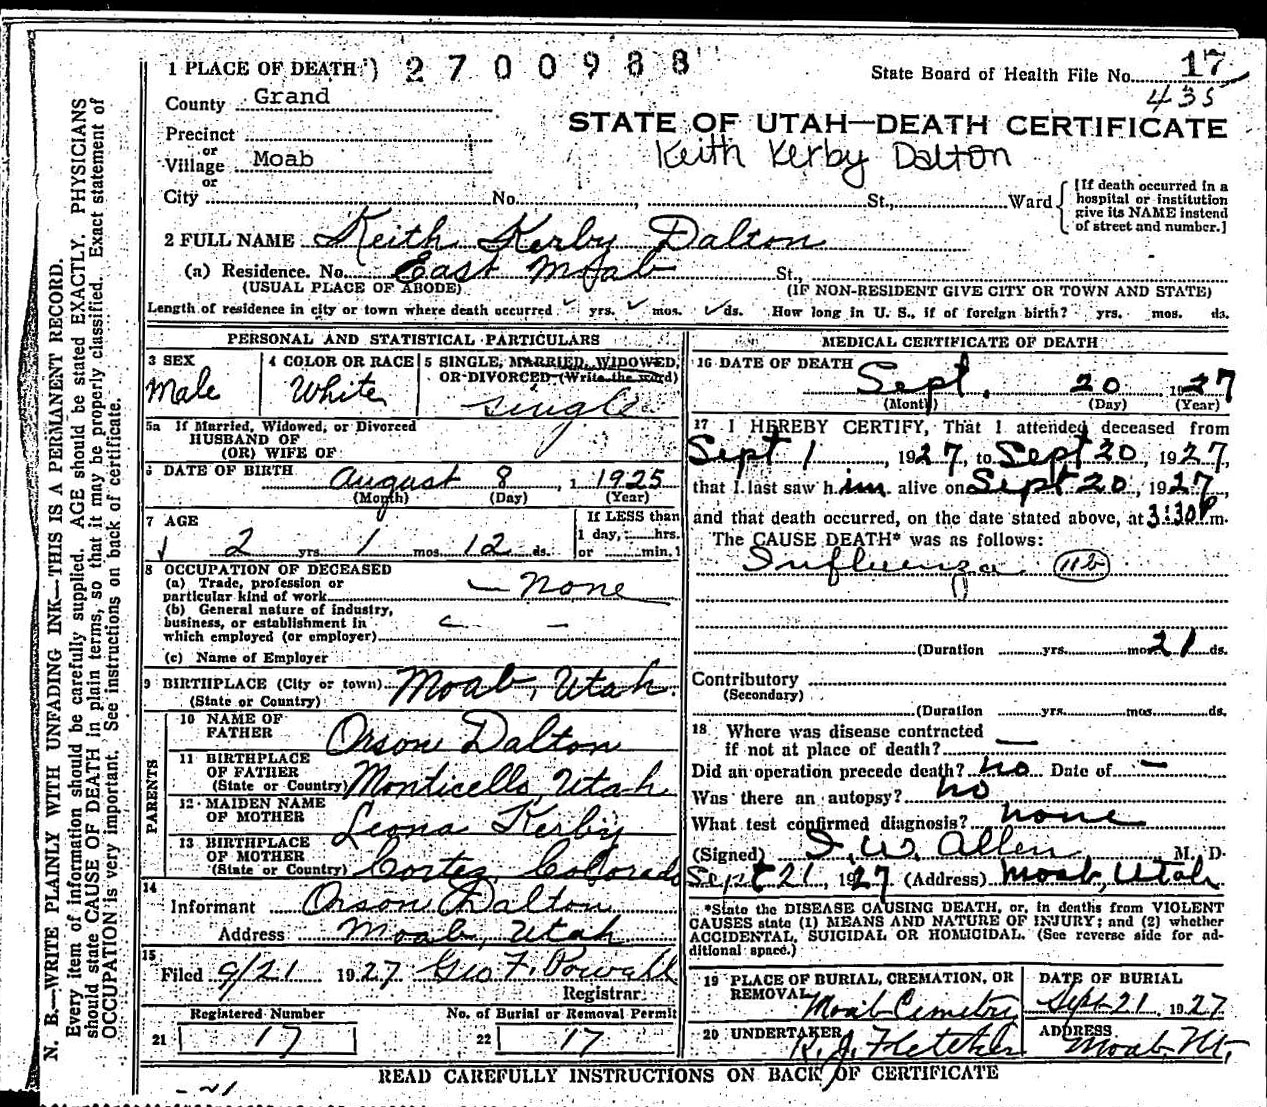 1 PLACE OF DEATH 2700988
State Board of Health File No. 17
435
County Grand
STATE OF UTAH—DEATH CERTIFICATE
Keith Kerby Dalton
Precinct
or
Village Moab
or
City No. St., Ward
[If death occurred in a
hospital or institution
give its NAME instead
of street and number.]
2 FULL NAME Keith Kerby Dalton
(a) Residence. No. East Moab St.,
(USUAL PLACE OF ABODE) (IF NON-RESIDENT GIVE CITY OR TOWN AND STATE)
Length of residence in city or town where death occurred yrs. mos. ds. How long in U. S., if of foreign birth? yrs. mos. ds.
PERSONAL AND STATISTICAL PARTICULARS
3 SEX
Male
4 COLOR OR RACE
White
5 SINGLE, MARRIED, WIDOWED,
OR DIVORCED (Write the word)
single
5a If Married, Widowed, or Divorced
HUSBAND OF
(OR) WIFE OF
6 DATE OF BIRTH August 8, 1 1925
(Month) (Day) (Year)
7 AGE
2 yrs. 1 mos. 12 ds.
If LESS than
1 day, hrs.
or min.
8 OCCUPATION OF DECEASED
(a) Trade, profession or
particular kind of work — none
(b) General nature of industry,
business, or establishment in
which employed (or employer)
(c) Name of Employer
9 BIRTHPLACE (City or town) Moab, Utah.
(State or Country)
PARENTS
10 NAME OF
FATHER Orson Dalton
11 BIRTHPLACE
OF FATHER
(State or Country) Monticello, Utah
12 MAIDEN NAME
OF MOTHER Leona Kerby
13 BIRTHPLACE
OF MOTHER
(State or Country) Cortez, Colorado
14
Informant Orson Dalton
Address Moab, Utah
15
Filed 9/21 1927 Geo F. Powell
Registrar
Registered Number No. of Burial or Removal Permit
21 17 22 17
MEDICAL CERTIFICATE OF DEATH
16 DATE OF DEATH
Sept. 20 1927
(Month) (Day) (Year)
17 I HEREBY CERTIFY, That I attended deceased from
Sept 1, 1927, to Sept 20, 1927,
that I last saw him alive on Sept 20, 1927,
and that death occurred, on the date stated above, at 3:30P m.
The CAUSE DEATH* was as follows:
Influenza 11b
(Duration yrs. mos. 21 ds.
Contributory
(Secondary)
(Duration yrs. mos. ds.
18 Where was disease contracted
if not at place of death? —
Did an operation precede death? no Date of —
Was there an autopsy? no
What test confirmed diagnosis? none
(Signed) I. W. Allen M. D.
Sept 21, 1927 (Address) Moab, Utah
*State the DISEASE CAUSING DEATH, or, in deaths from VIOLENT
CAUSES state (1) MEANS AND NATURE OF INJURY; and (2) whether
ACCIDENTAL, SUICIDAL OR HOMICIDAL. (See reverse side for ad-
ditional space.)
19 PLACE OF BURIAL, CREMATION, OR
REMOVAL Moab Cemetery
DATE OF BURIAL
Sept 21 1927
20 UNDERTAKER
R. J. Fletcher
ADDRESS
Moab, Ut.
READ CAREFULLY INSTRUCTIONS ON BACK OF CERTIFICATE
N. B.—WRITE PLAINLY WITH UNFADING INK—THIS IS A PERMANENT RECORD.
Every item of information should be carefully supplied. AGE should be stated EXACTLY. PHYSICIANS
should state CAUSE OF DEATH in plain terms, so that it may be properly classified. Exact statement of
OCCUPATION is very important. See instructions on back of certificate.